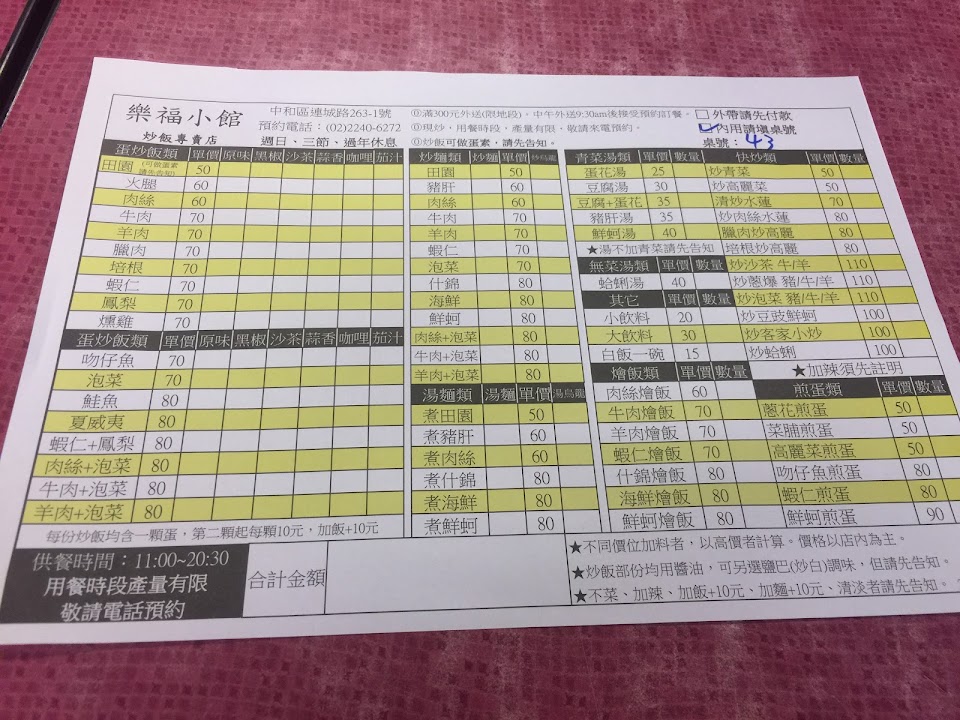 樂福小館
炒飯專賣店
中和區連城路263-1號
預約電話：(02)2240-6272
週日、三節、過年休息
◎滿300元外送(限地段)，中午外送9:30am後接受預約訂餐。
◎現炒，用餐時段，產量有限，敬請來電預約。
◎炒飯可做蛋素，請先告知。
外帶請先付款
內用請填桌號
桌號：43
蛋炒飯類 單價 原味 黑椒 沙茶 蒜香 咖哩 茄汁
田園 (可做蛋素 請先告知) 50
火腿 60
肉絲 60
牛肉 70
羊肉 70
臘肉 70
培根 70
蝦仁 70
鳳梨 70
燻雞 70
蛋炒飯類 單價 原味 黑椒 沙茶 蒜香 咖哩 茄汁
吻仔魚 70
泡菜 70
鮭魚 80
夏威夷 80
蝦仁+鳳梨 80
肉絲+泡菜 80
牛肉+泡菜 80
羊肉+泡菜 80
每份炒飯均含一顆蛋，第二顆起每顆10元，加飯+10元
炒麵類 炒麵 單價 炒烏龍
田園 50
豬肝 60
肉絲 60
牛肉 70
羊肉 70
蝦仁 70
泡菜 70
什錦 80
海鮮 80
鮮蚵 80
肉絲+泡菜 80
牛肉+泡菜 80
羊肉+泡菜 80
湯麵類 湯麵 單價 湯烏龍
煮田園 50
煮豬肝 60
煮肉絲 60
煮什錦 80
煮海鮮 80
煮鮮蚵 80
青菜湯類 單價 數量
蛋花湯 25
豆腐湯 30
豆腐+蛋花 35
豬肝湯 35
鮮蚵湯 40
★湯不加青菜請先告知
無菜湯類 單價 數量
蛤蜊湯 40
其它 單價 數量
小飲料 20
大飲料 30
白飯一碗 15
燴飯類 單價 數量
肉絲燴飯 60
牛肉燴飯 70
羊肉燴飯 70
蝦仁燴飯 70
什錦燴飯 80
海鮮燴飯 80
鮮蚵燴飯 80
快炒類 單價 數量
炒青菜 50
炒高麗菜 50
清炒水蓮 70
炒肉絲水蓮 80
臘肉炒高麗 80
培根炒高麗 80
炒沙茶 牛/羊 110
炒蔥爆 豬/牛/羊 110
炒泡菜 豬/牛/羊 110
炒豆豉鮮蚵 100
炒客家小炒 100
炒蛤蜊 100
★加辣須先註明
煎蛋類 單價 數量
蔥花煎蛋 50
菜脯煎蛋 50
高麗菜煎蛋 50
吻仔魚煎蛋 80
蝦仁煎蛋 80
鮮蚵煎蛋 90
供餐時間：11:00~20:30
用餐時段產量有限
敬請電話預約
合計金額
★不同價位加料者，以高價者計算。價格以店內為主。
★炒飯部份均用醬油，可另選鹽巴(炒白)調味，但請先告知。
★不菜、加辣、加飯+10元、加麵+10元、清淡者請先告知。